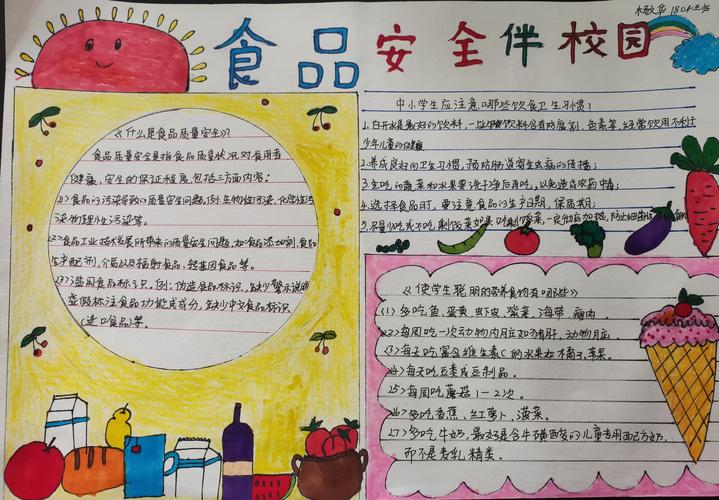 食品安全伴校园
《什么是食品质量安全》
食品质量安全是指食品质量状况对食用者
健康、安全的保证程度,包括三方面内容:
(1)食品的污染导致的质量安全问题,例:生物性污染,化学性污
染物理性污染等。
(2)食品工业技术发展所带来的质量安全问题,如食品添加剂,食品
生产配剂,介质以及辐射食品,转基因食品等。
(3)滥用食品标识。例:伪造食品标识,缺少警示说明
虚假标注食品功能或成分,缺少中文食品标识
(进口食品)等。
中小学生应注意哪些饮食卫生习惯?
1.白开水是最好的饮料,一些饮料含有防腐剂、色素等,经常饮用不利于
少年儿童的健康
2.养成良好的卫生习惯,预防肠道寄生虫病的传播;
3.生吃的蔬菜和水果要洗干净后再吃,以免造成农药中毒;
4.选择食品时,要注意食品的生产日期,保质期;
5.尽量少吃或不吃剩饭菜如果吃剩饭菜,一定彻底加热,防止细菌性
《使学生聪明的营养食物有哪些》
(1)多吃鱼、蛋黄、虾皮、紫菜、海带、瘦肉。
(2)每周吃一次动物内脏如猪肝,动物
(3)每天吃富含维生素C的水果如橘子,苹果。
(4)每天吃豆类或豆制品。
(5)每周吃蘑菇1-2次。
(6)多吃香蕉、红萝卜、菠菜。
(7)多吃牛奶,最好是含牛磺酸的儿童专用配方奶,
而不是麦乳精类。